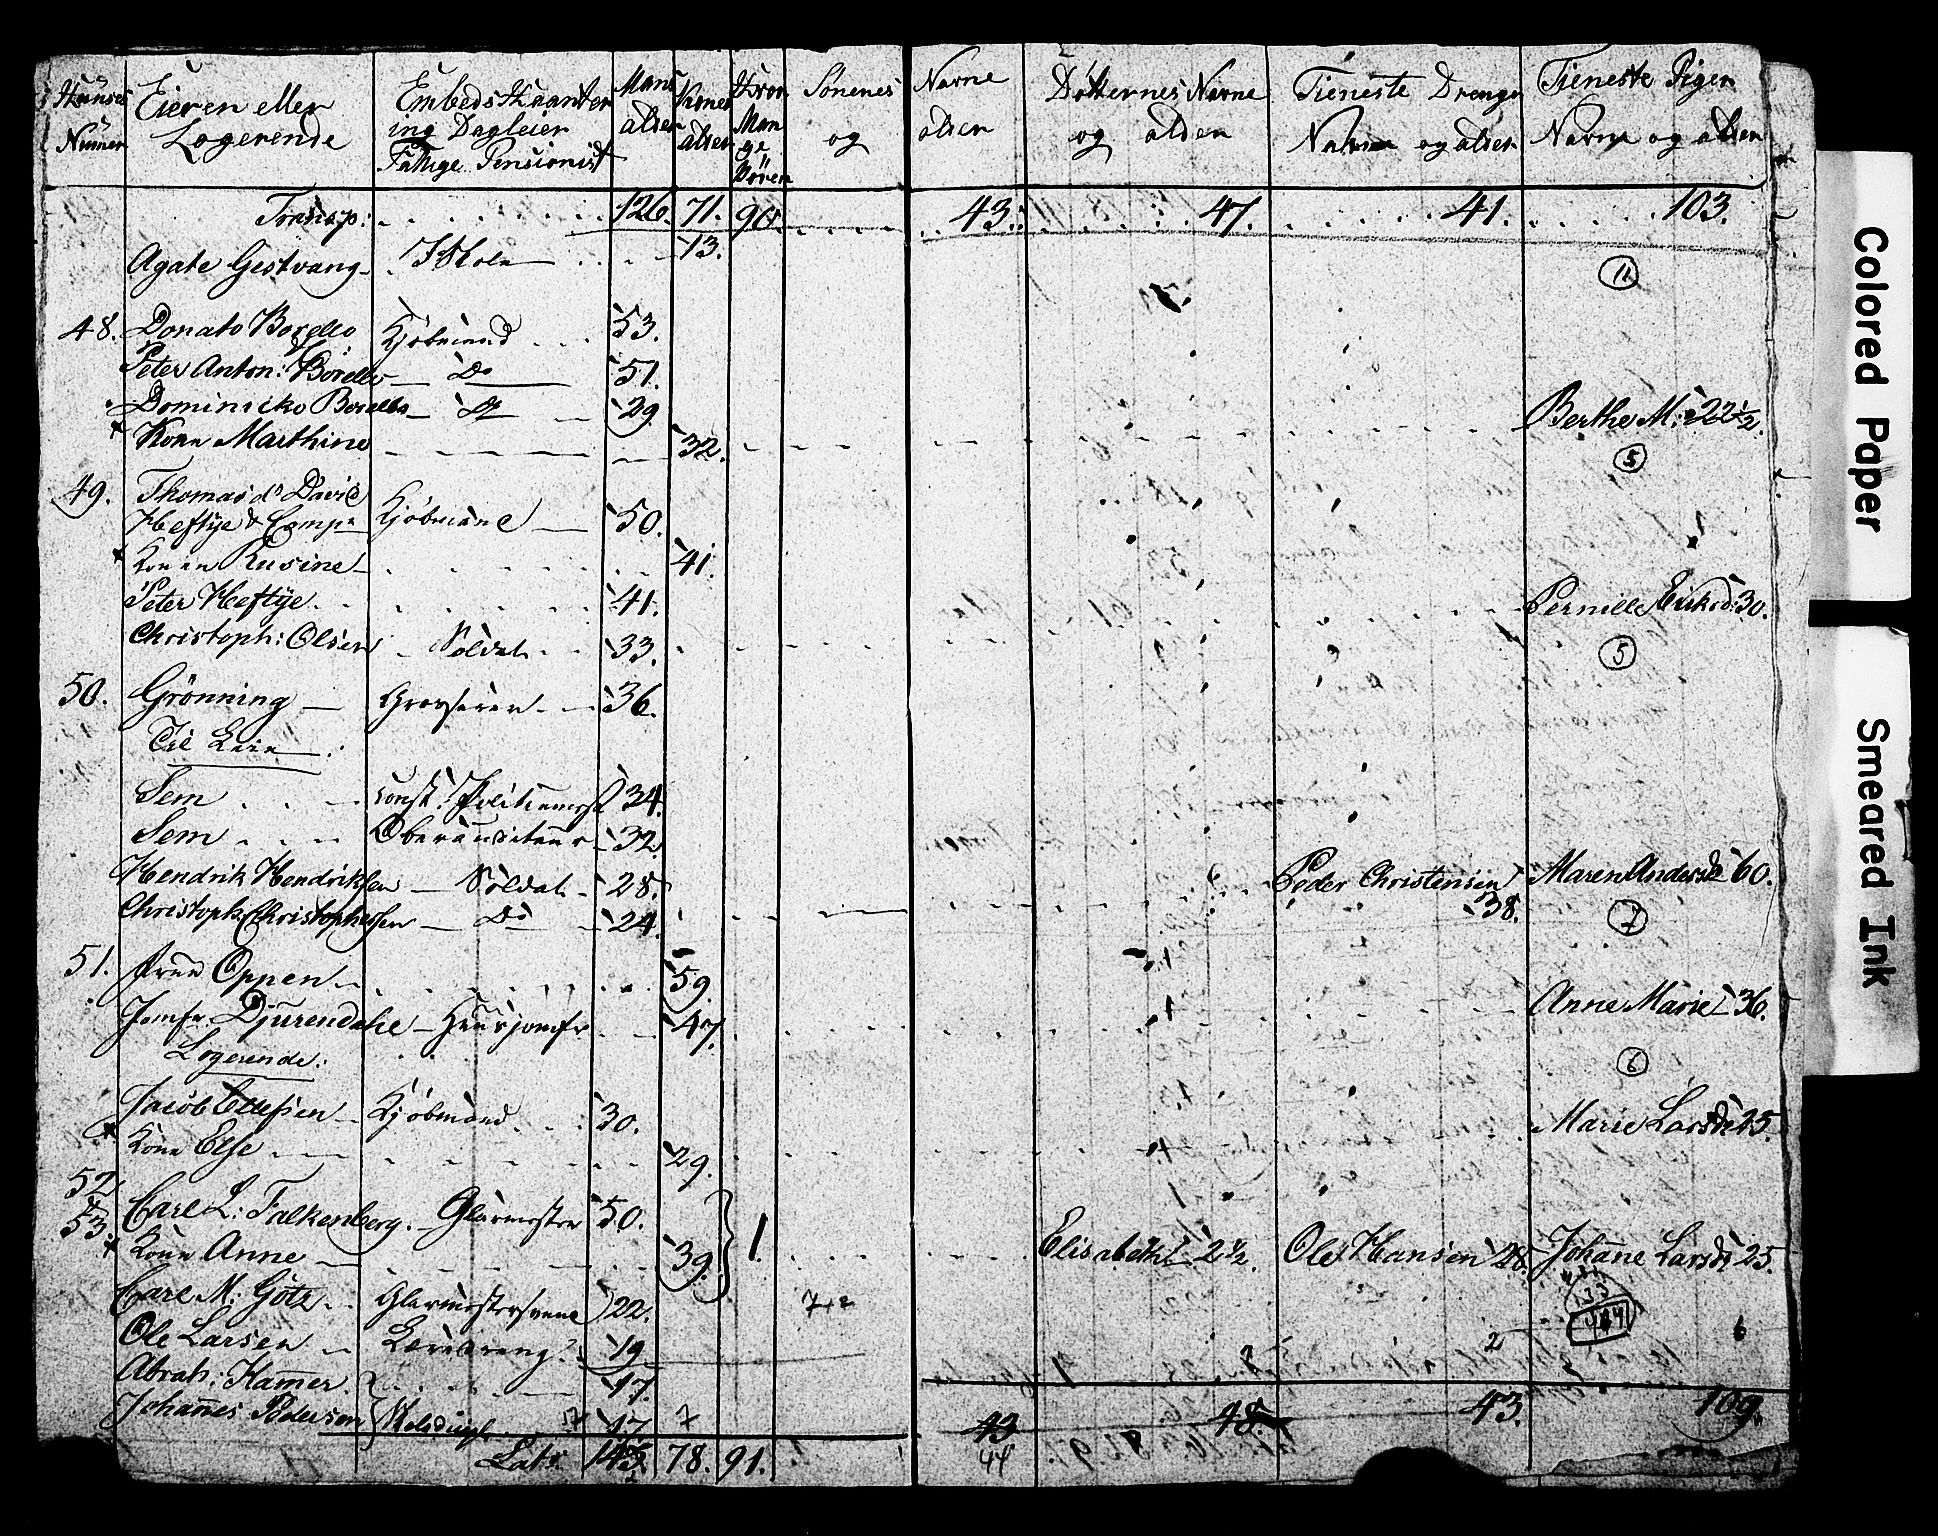 Huuses Nummer | Eieren eller Logerende | Embeds Haanter ing Dagleier Fattige Pensionist | Mans alder | Konens alder | Hvor Man ge Børen | Sønenes Navne og alder | Døtternes Navne og alder | Tieneste Drenge Navne og alder | Tieneste Piger Navne og alder
Transp: 126. 71. 90. 43. 47. 41. 103.
Agate Gestvang 13. 11
48. Donato Borello Kjøbmand 53.
Peter Anton: Borello Do 51.
Dominiko Borello Do 29 Berthe M: 22 1/2.
Kone Marthine 32. 5
49. Thomas Js David
Heftye & Comp: Kjøbmand 50.
Konen Rusine 41.
Peter Heftye 41. Pernille Eriksd: 30.
Christoph: Olsen Soldat 33. 5
50. Grønning 36.
Til Leie
Sem const: 34
Sem Oberauditeur 32.
Hendrik Hendriksen Soldat 28. Peder Christensen 38. Maren Andersd 60.
Christoph: Christophersen Do 24. 7
51. Frue Oppen 59.
Jomfr. Djurendahl Huusjomfr 47. Anne Marie 36.
Logerende: 6
Jacob Ellefsen Kjøbmand 30. Marie Larsd 25.
Kone Else 29.
52
& 53. Carl L: Falkenberg Glarmester 50. 1.
Kone Anne 39. Elisabeth 2 1/2. Ole Hansen 28. Johane Larsd 25.
Carl M: Götz Glarmestersvend 22.
Ole Larsen Læredreng 19
Abrah: Hamer 17.
Johannes Pedersen 17.
2 6
43 48. 43. 109
Lats. 78. 91. 44
Colored Paper
Smeared Ink